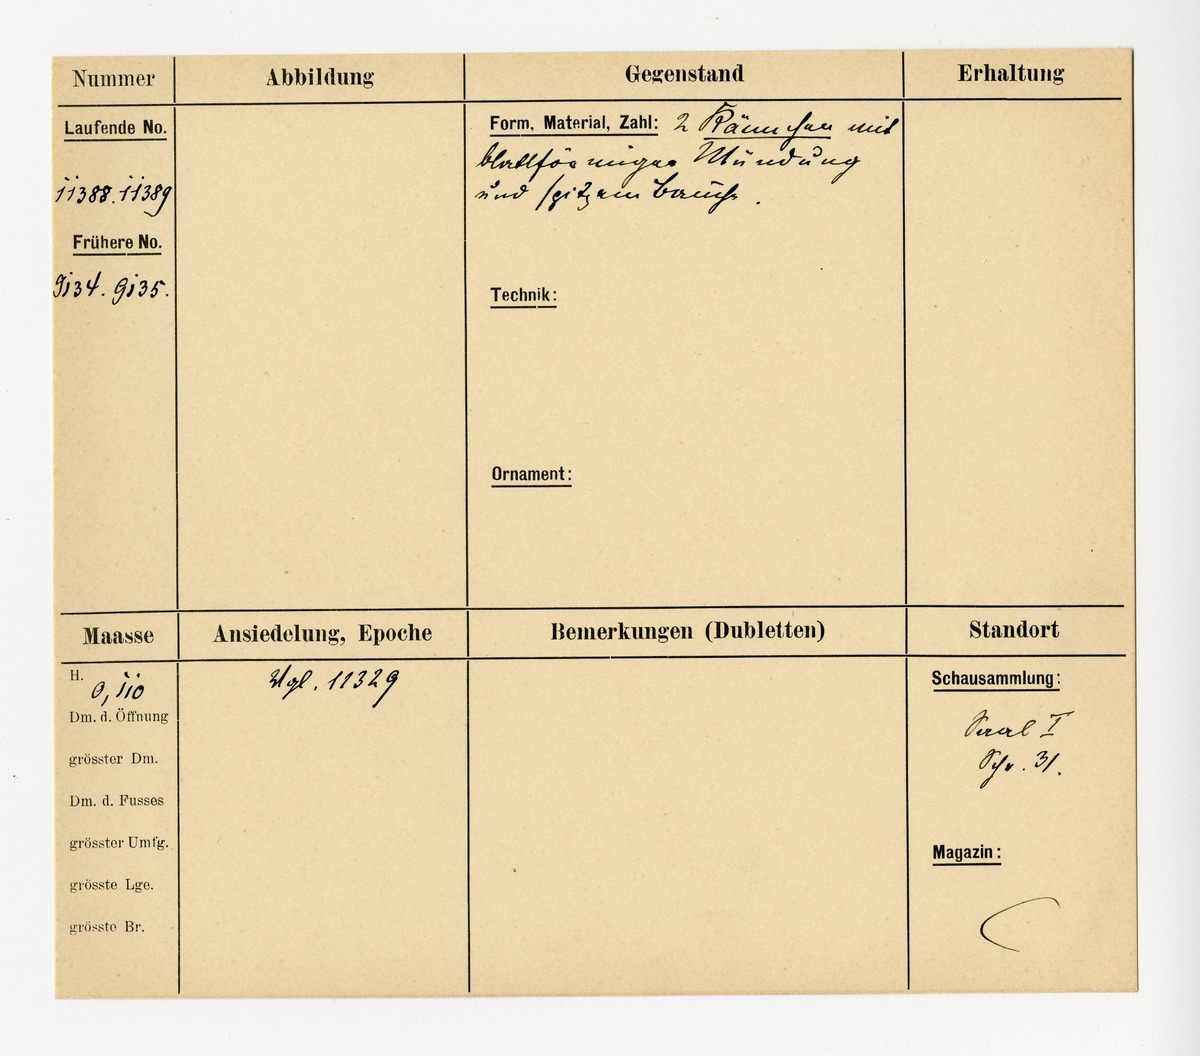 Nummer
Abbildung
Gegenstand
Erhaltung
Laufende No.
11388. 11389
Frühere No.
9134. 9135.
Form, Material, Zahl: 2 Kännchen mit
blattförmiger Mündung
und spitzem Bauch.
Technik:
Ornament:
Maasse
Ansiedelung, Epoche
Bemerkungen (Dubletten)
Standort
H. 0,110
Dm. d. Öffnung
grösster Dm.
Dm. d. Fusses
grösster Umfg.
grösste Lge.
grösste Br.
Vgl. 11329
Schausammlung:
Saal I
Schr. 31.
Magazin: